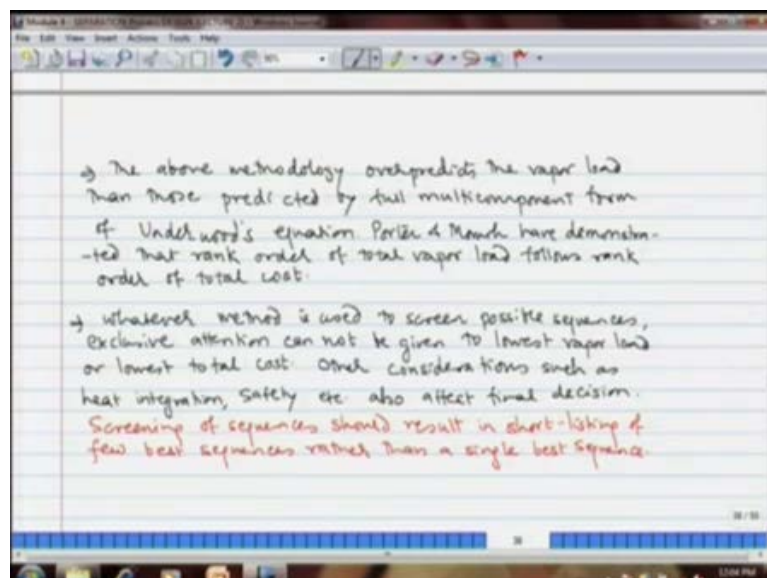 Module 4 - SEPARATION Process DESIGN (LECTURE 2) - Windows Journal
File Edit View Insert Actions Tools Help
→ The above methodology overpredicts the vapor load
than those predicted by full multicomponent form
of Underwood's equation. Porter & Momoh have demonstra-
-ted that rank order of total vapor load follows rank
order of total cost.
→ Whatever method is used to screen possible sequences,
exclusive attention can not be given to lowest vapor load
or lowest total cost. Other considerations such as
heat integration, safety etc also affect final decision.
Screening of sequences should result in short-listing of
few best sequences rather than a single best sequence.
38
12:04 PM